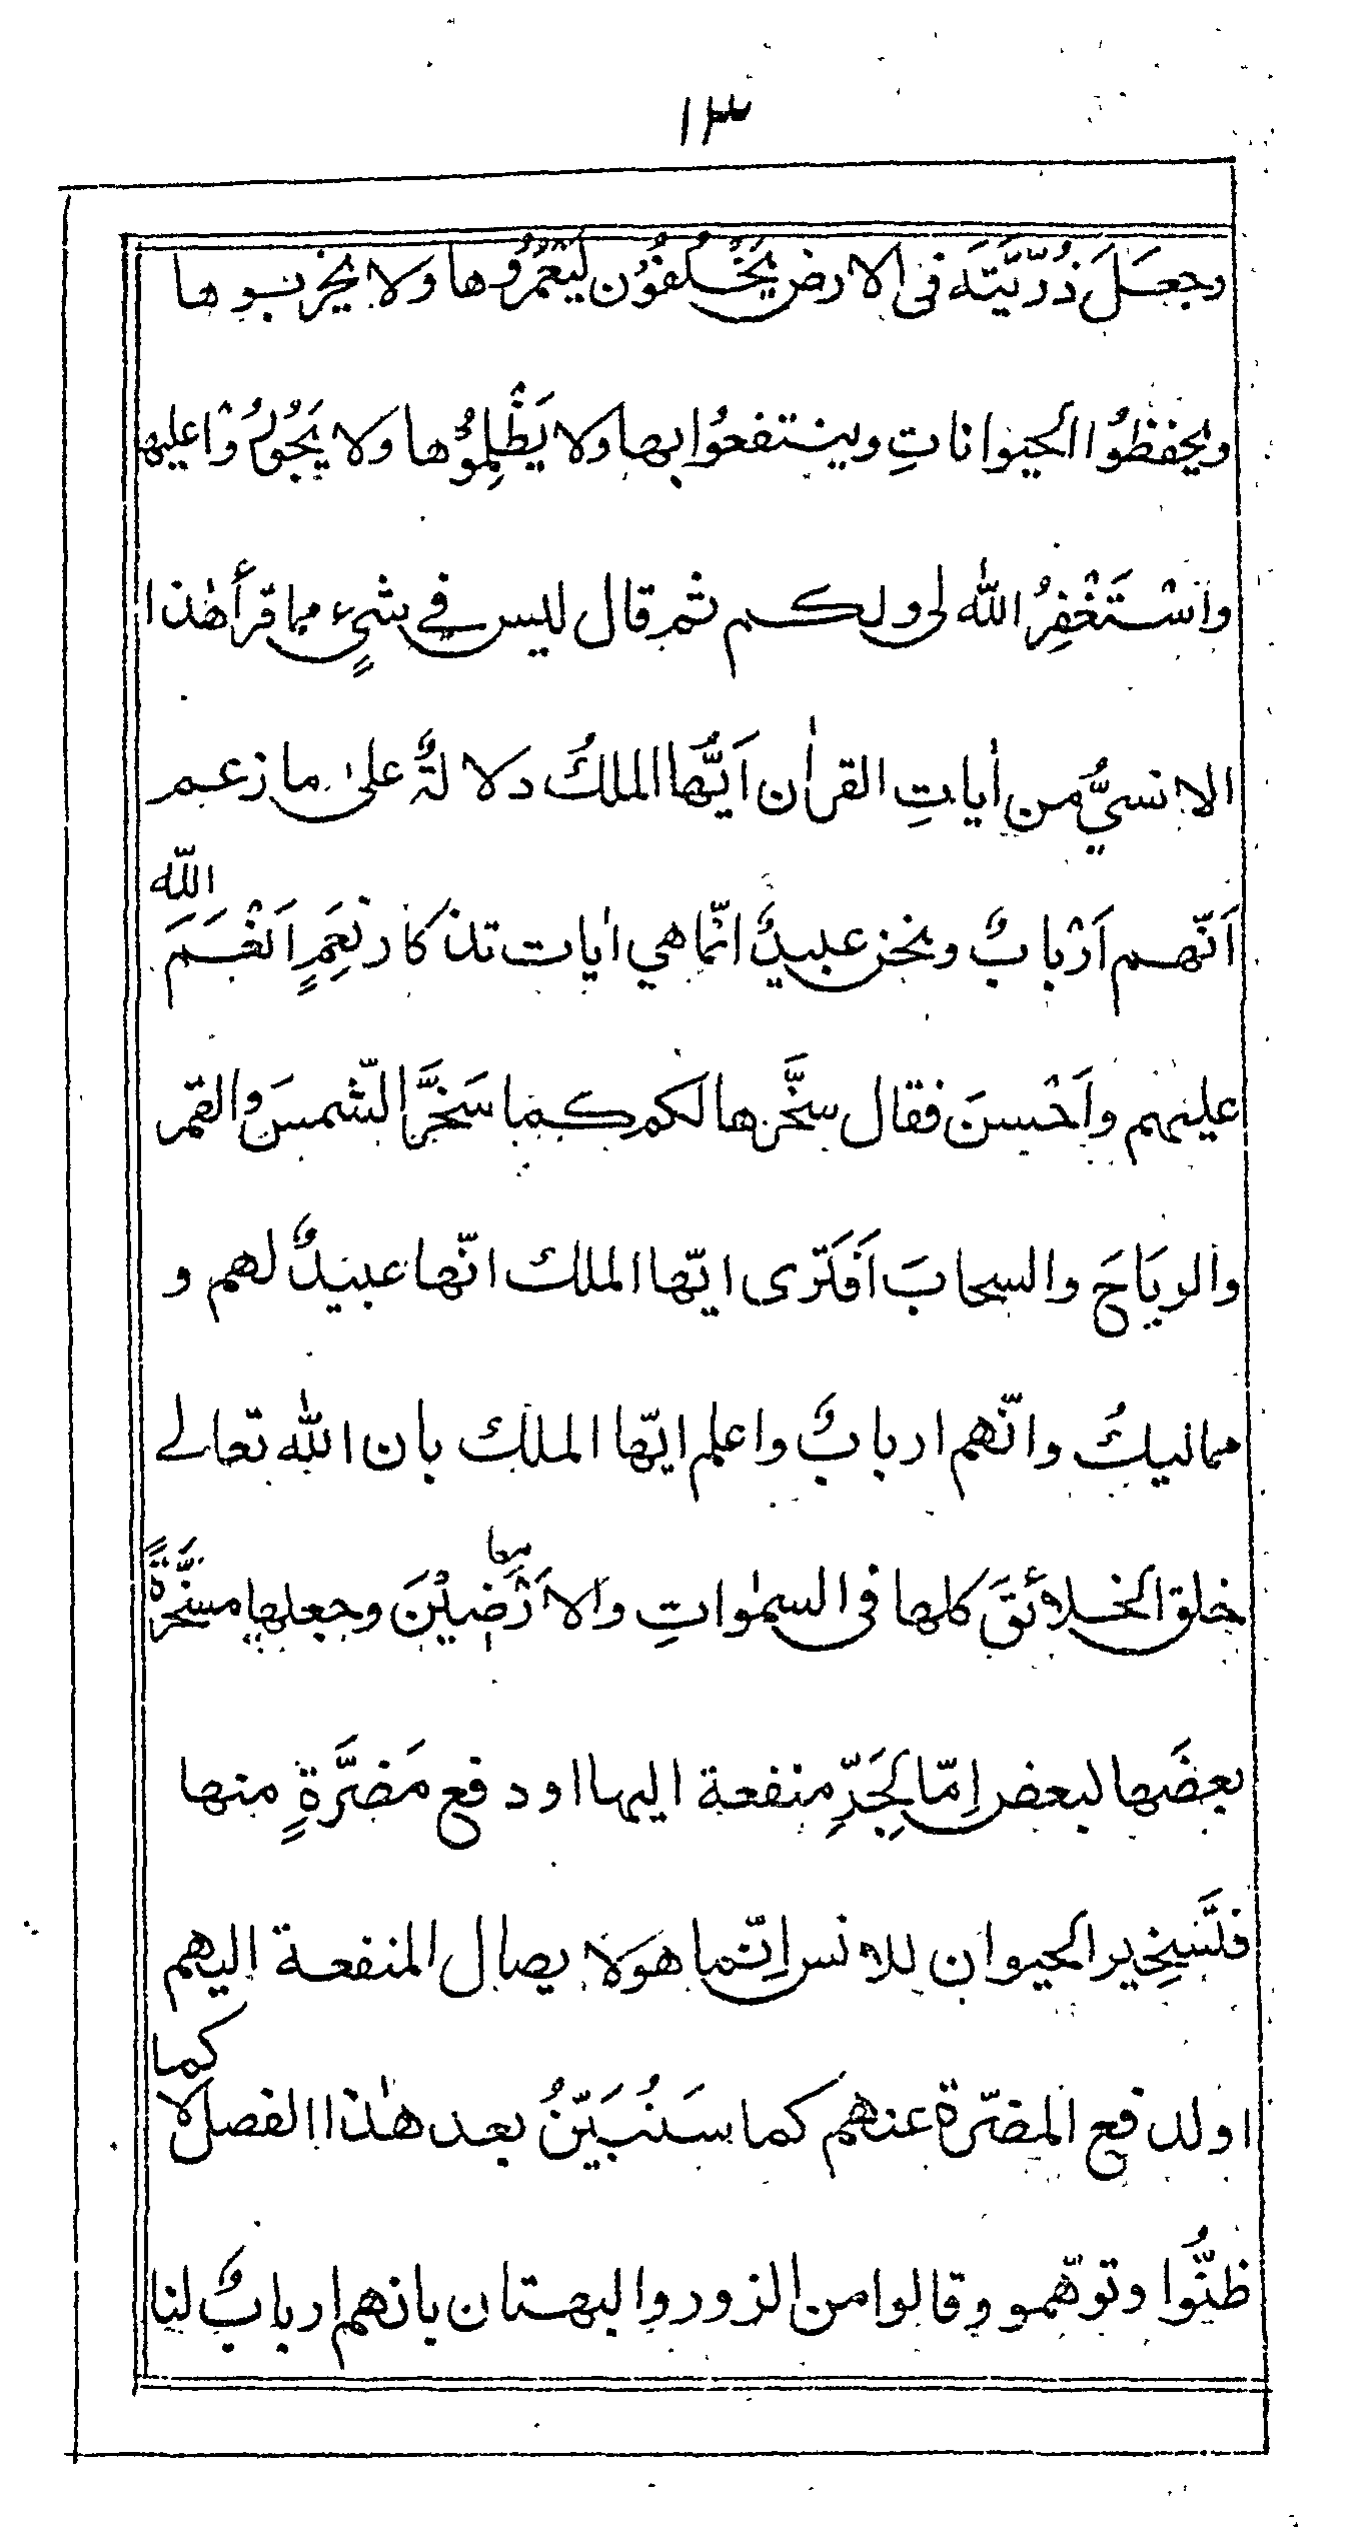 ١٣
وجعَلَ ذُرّيَّتَهَ فى الارض يَخْلُفُوْن لِيَعْمُرُوها ولا يخربوها
ويحفظوُا الحيوانات وينتفعوُا بها ولا يَظْلِمُوُها ولا يَجُوُرُوْا عليها
واَسْتَغْفِرُ الله لى ولكم ثم قال ليس فے شیٍء مما قرأ هٰذا
الانسيُّ من اٰياتِ القراٰن اَيُّها الملكُ دلالةٌ علىٰ ما زعم
اَنّهم اَرْبابٌ ونحن عبيدٌ انّما هي اٰيات تذكار نِعَمٍ اَنْعَمَ الله
عليهم واَحْسنَ فقال سخَّرها لكم كما سَخَّرَ الشّمسَ والقمر
والريَاحَ والسحابَ اَفَتَرى ايّها الملك انّها عبيدٌ لهم و
مماليكُ وانّهم اربابٌ واعلم ايّها الملك بان الله تعالے
خلق الخلائقَ كلها فى السمٰوات والاَرْضِيْنَ وجعلها مسخَّرةً
بعضَها لبعض اِمّا لِجَرِّ منفعة اليها او دفع مَضَرَّةٍ منها
فتَسخِير الحيوان للانس اِنّما هو لا يصال المنفعة اليهم
او لدفع المضرّة عنهم كما سَنُبَيّنُ بعد هٰذا الفصل لا كما
ظنُّوا وتوهّمو وقالوا من الزور والبهتان بانهم اربابٌ لنا